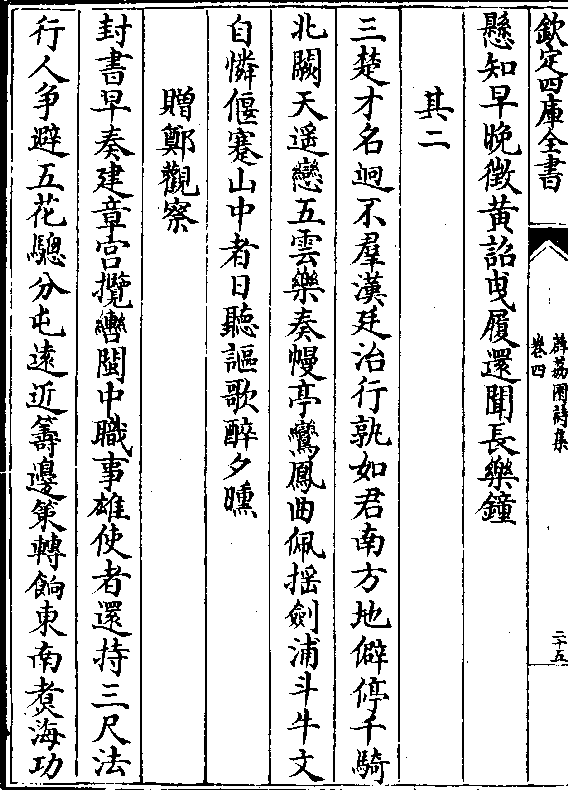 欽定四庫全書
薜荔園詩集
卷四
二十五
懸知早晚徵黃詔曳履還聞長樂鐘
其二
三楚才名迥不羣漢廷治行孰如君南方地僻停千騎
北闕天遥戀五雲樂奏幔亭鸞鳳曲佩揺劍浦斗牛文
自憐偃蹇山中者日聽謳歌醉夕曛
贈鄭觀察
封書早奏建章宫攬轡閩中職事雄使者還持三尺法
行人争避五花驄分屯遠近籌邊策轉餉東南煑海功